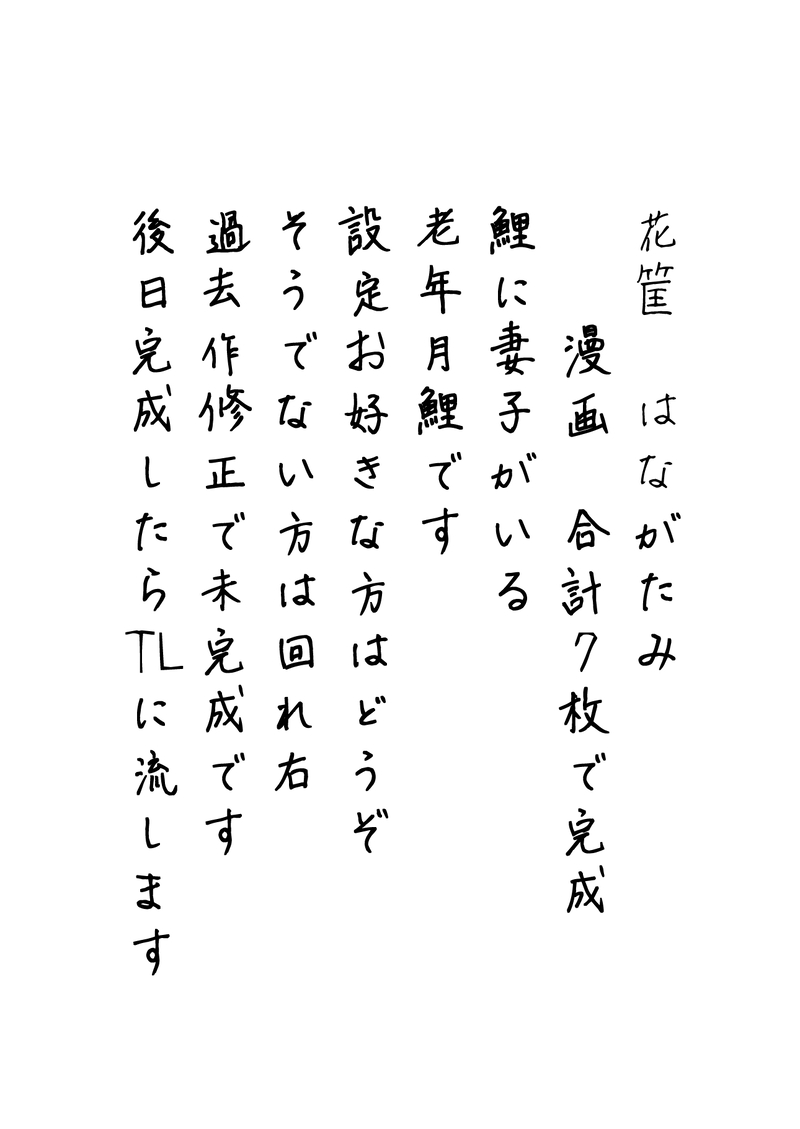 花筐　はながたみ
漫画　合計7枚で完成
鯉に妻子がいる
老年月鯉です
設定お好きな方はどうぞ
そうでない方は回れ右
過去作修正で未完成です
後日完成したらTLに流します